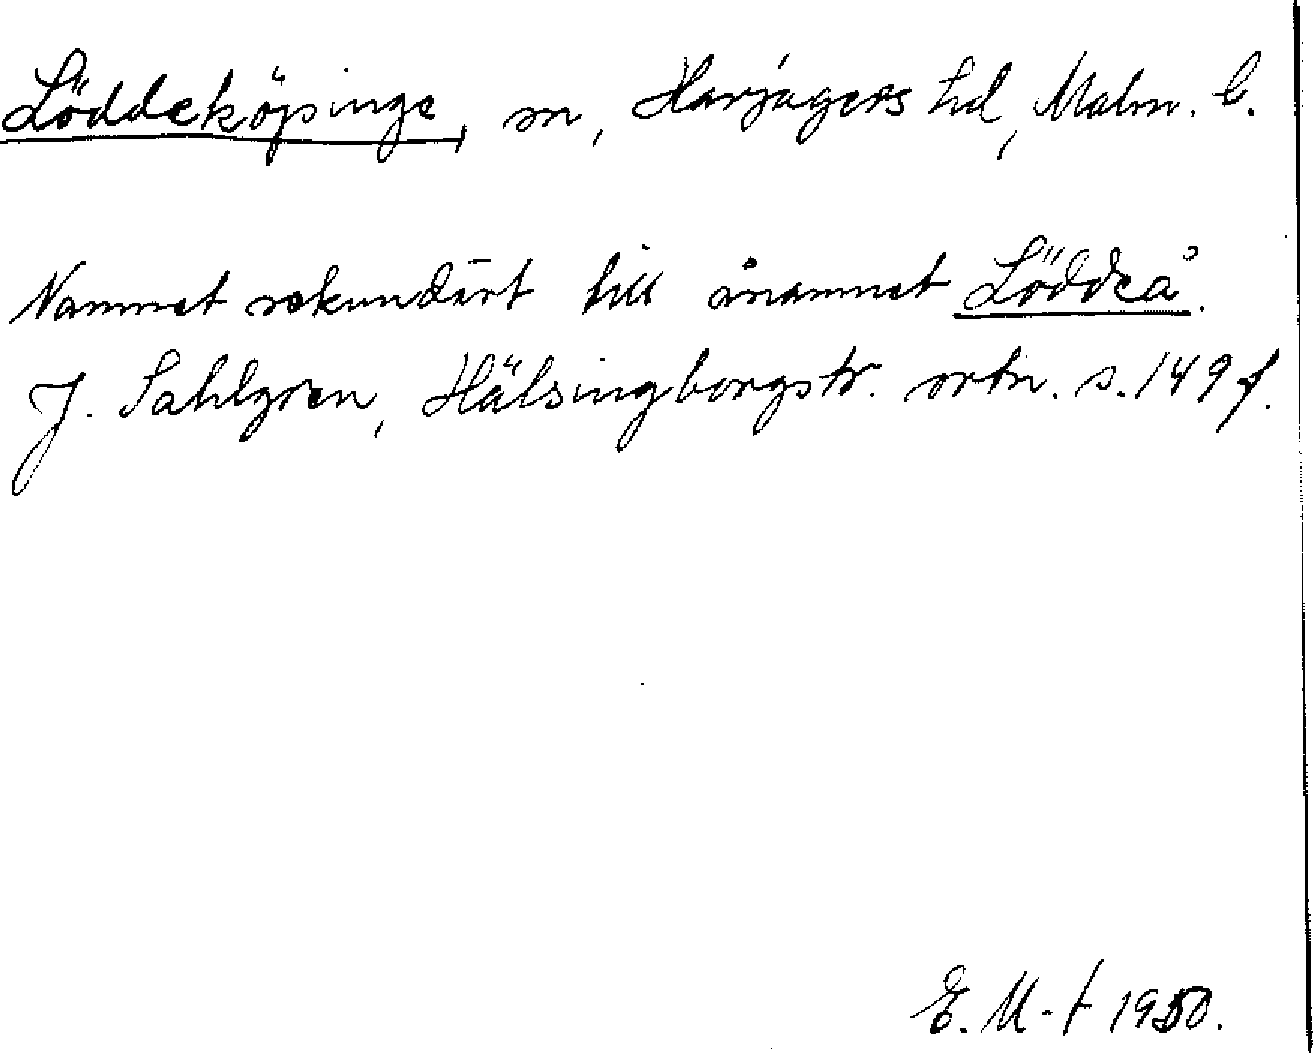 Löddeköpinge, sn, Harjagers hd, Malm. l.
Namnet sekundärt till ånamnet Löddeå.
J. Sahlgren, Hälsingborgstr. ortn. s. 149 f.
E. M-t 1950.